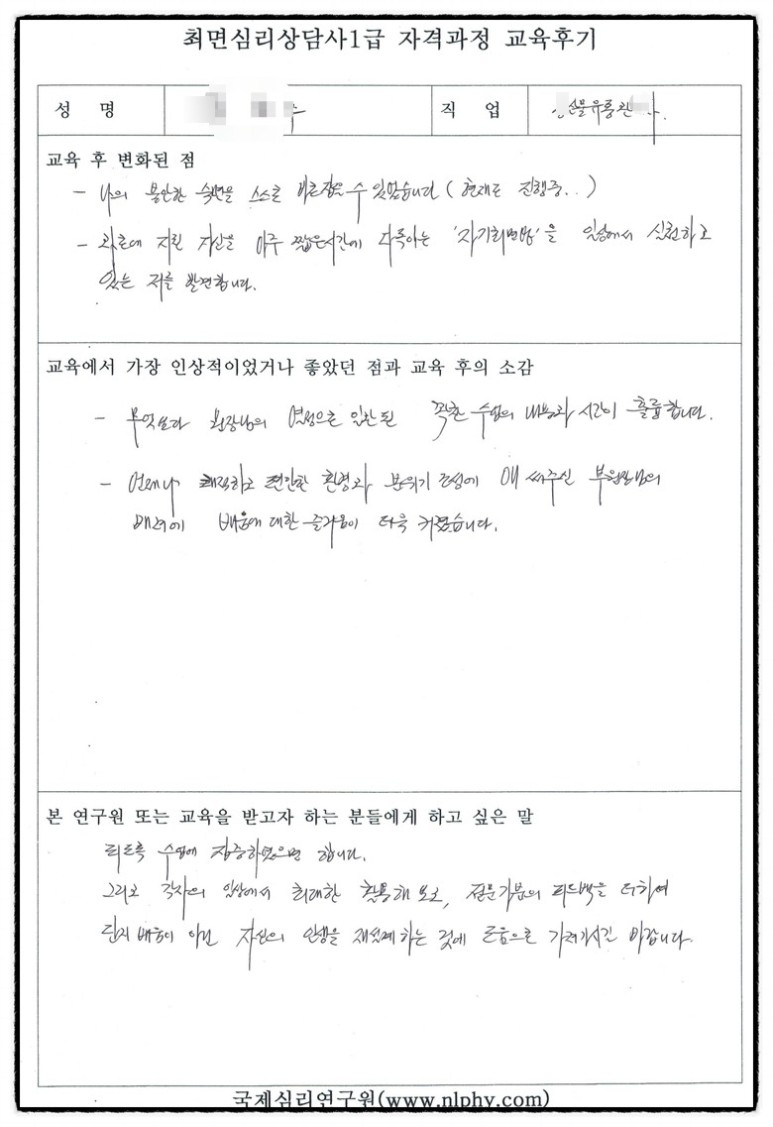 최면심리상담사1급 자격과정 교육후기
성 명
직 업
교육 후 변화된 점
- 나의 불안한 숙면을 스스로 바로잡을 수 있었습니다 (현재도 진행중..)
- 과로에 지친 자신을 아주 짧은시간에 다독이는 '자기최면법'을 일상에서 실천하고
있는 저를 발견합니다.
교육에서 가장 인상적이었거나 좋았던 점과 교육 후의 소감
- 무엇보다 원장님의 열정으로 일관된 꽉찬 수업의 내용과 시간이 훌륭합니다.
- 언제나 쾌적하고 편안한 환경과 분위기 조성에 애 써주신 부원장님의
배려에 배움에 대한 즐거움이 더욱 커졌습니다.
본 연구원 또는 교육을 받고자 하는 분들에게 하고 싶은 말
되도록 수업에 집중하였으면 합니다.
그리고 각자의 일상에서 최대한 활용해 보고, 전문가분의 피드백을 더하여
단지 배움이 아닌 자신의 인생을 재설계하는 것에 도움으로 가져가시길 바랍니다.
국제심리연구원(www.nlphy.com)